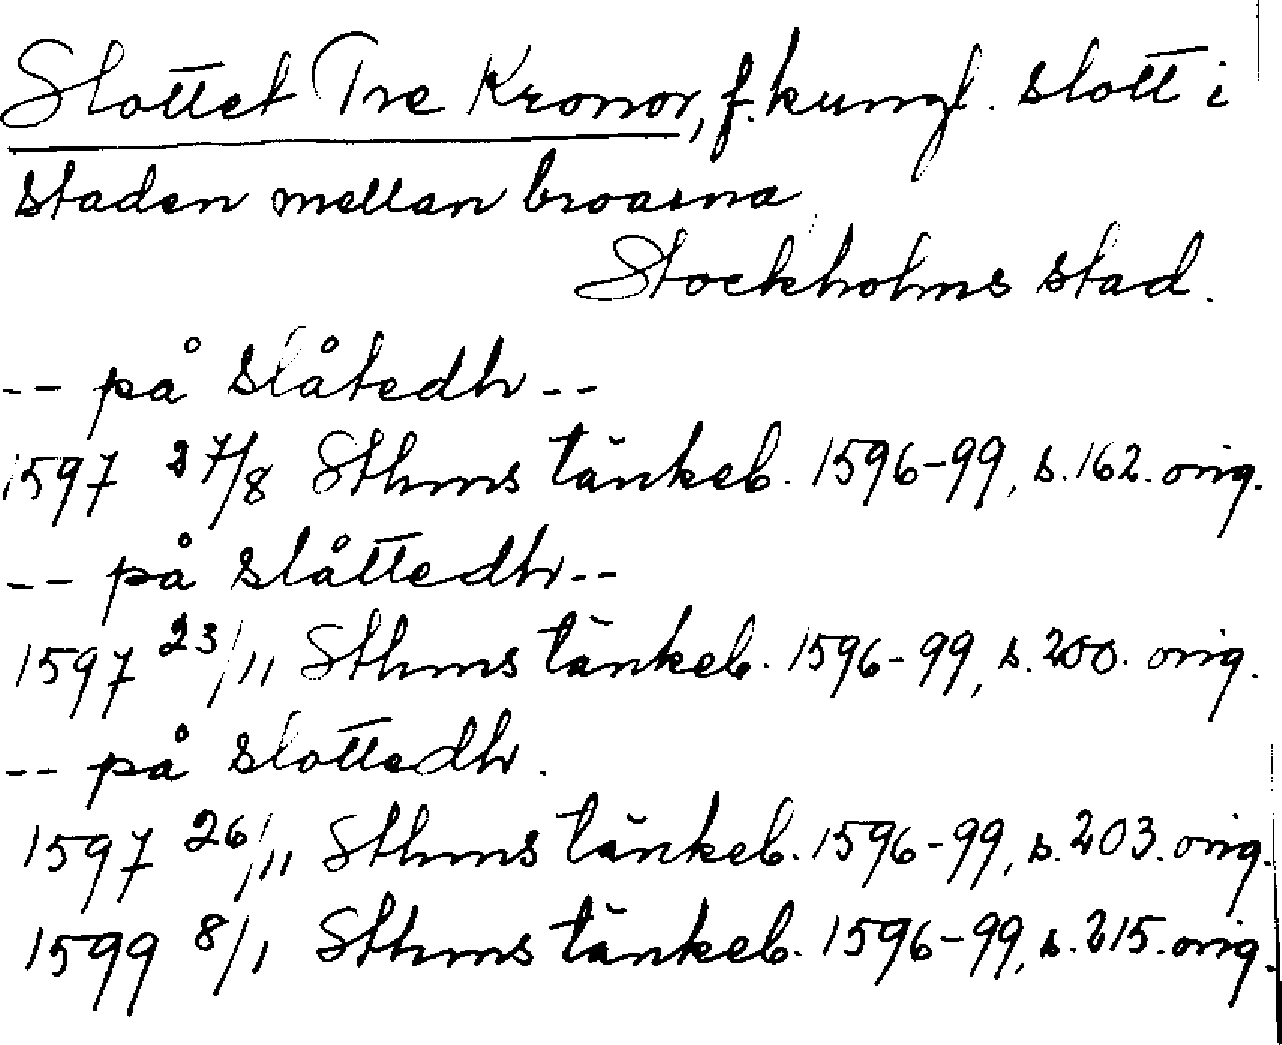 Slottet Tre Kronor, f. kungl. slott i
staden mellan broarna
Stockholms stad.
-- på slåtedh --
1597 27/8 Sthms tänkeb. 1596-99, s. 162. orig.
-- på slåttedh --
1597 23/11 Sthms tänkeb. 1596-99, s. 200. orig.
-- på slottedh.
1597 26/11 Sthms tänkeb. 1596-99, s. 203. orig.
1599 8/1 Sthms tänkeb. 1596-99, s. 215. orig.